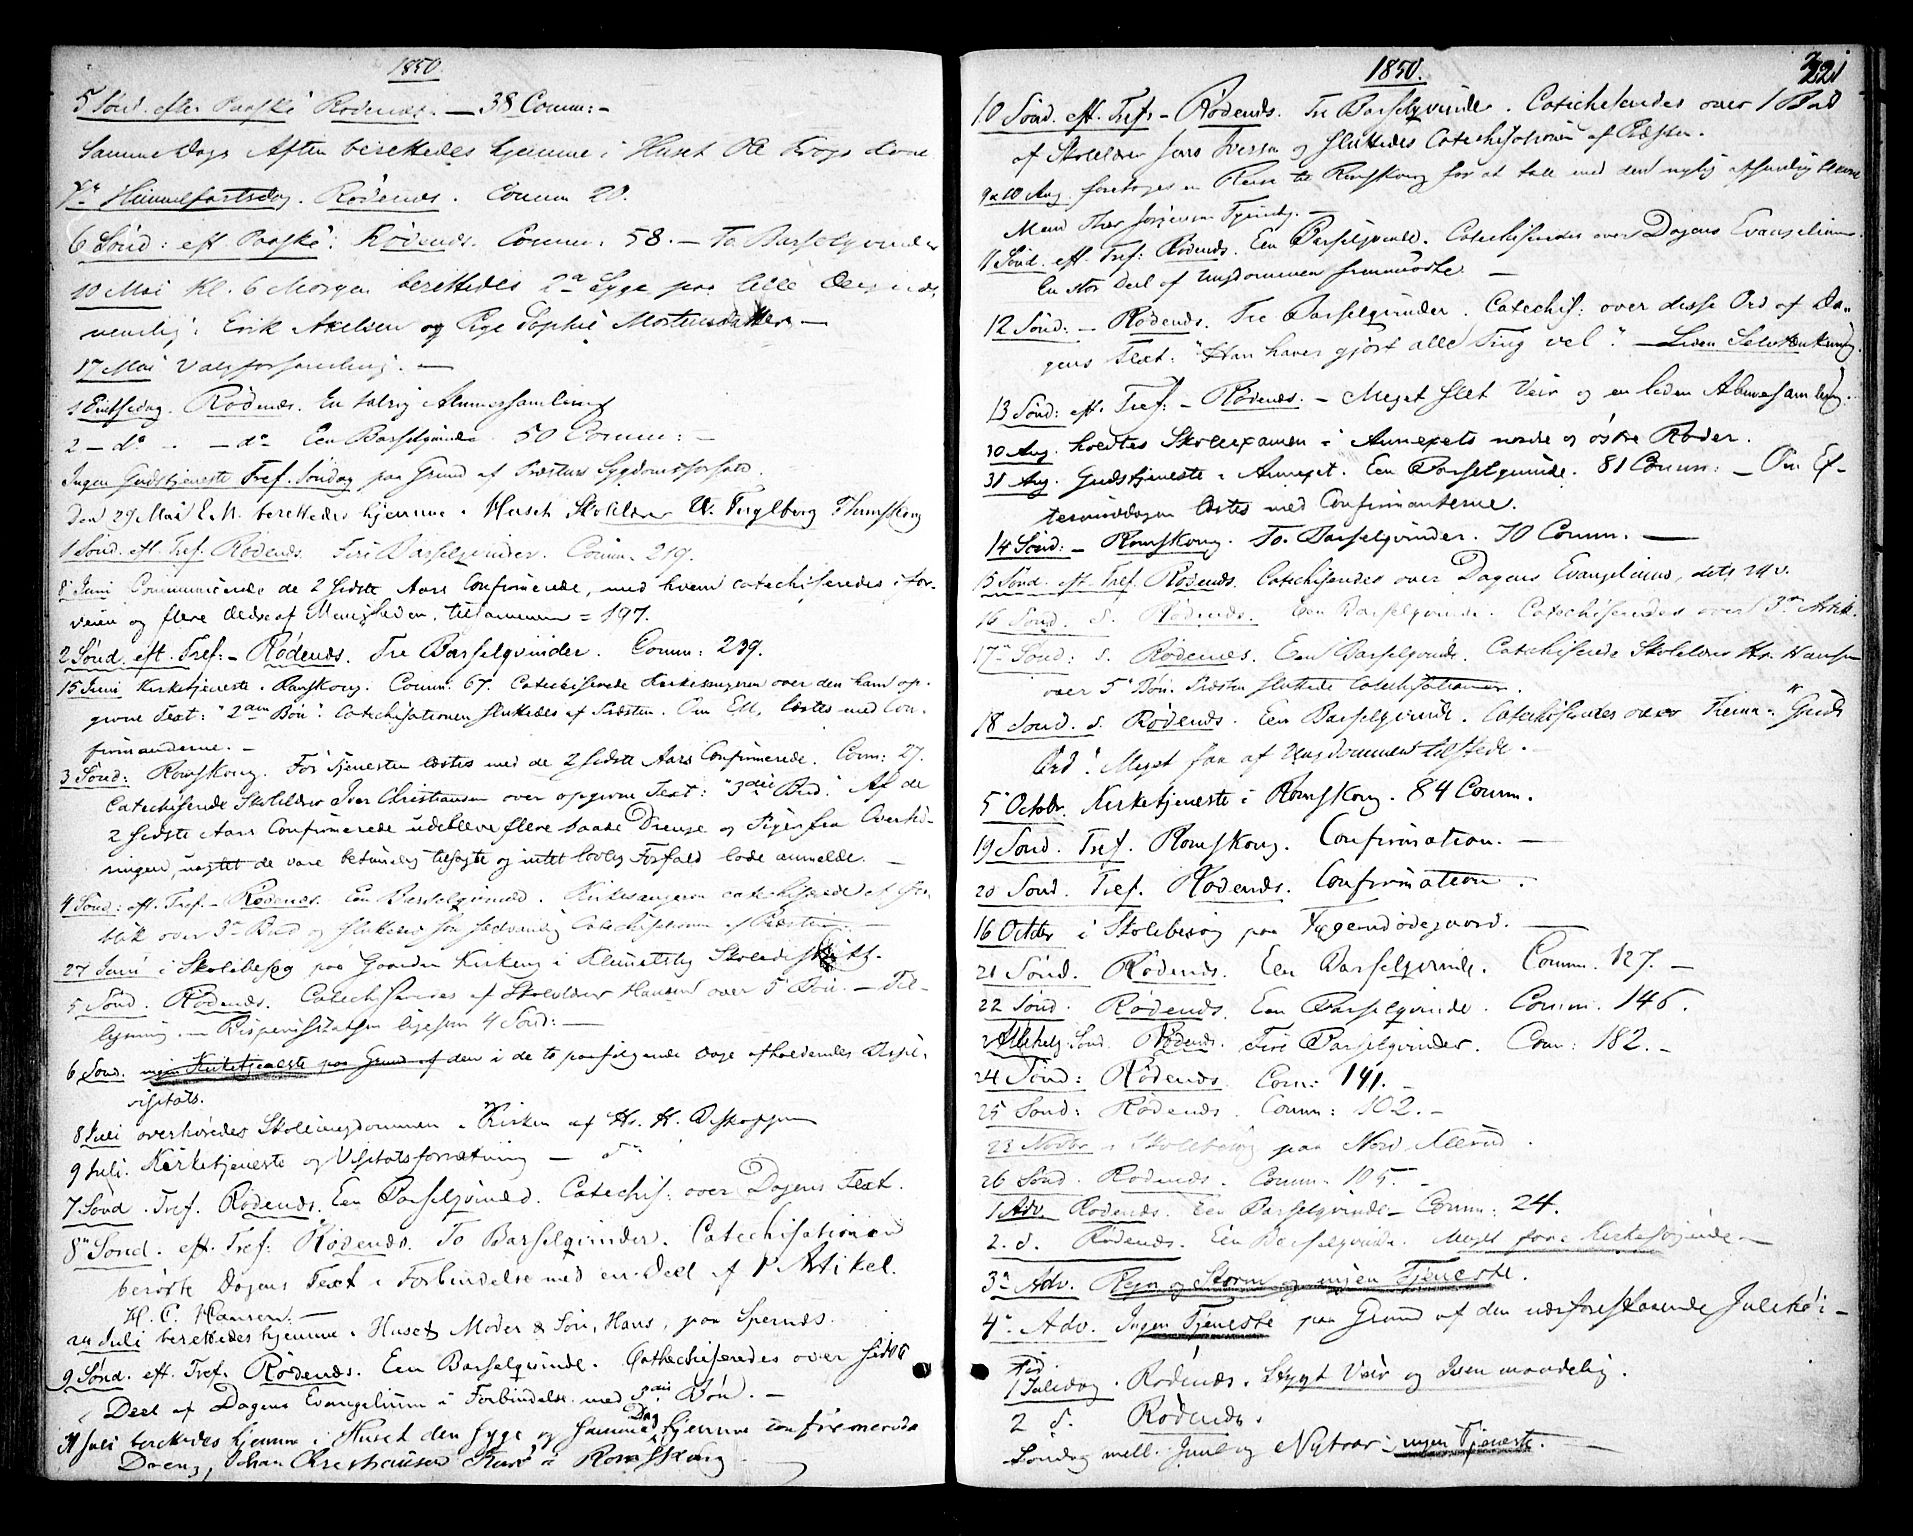 1850
5 Sønd. efter Paaske Rødenæs. — 38 Comm: —
Samme Dags Aften berettedes hjemme i Huset
Kr. Himmelfartsdag. Rødenæs. Comm 20.
6 Sønd: eft Paaske: Rødenæs. Comm. 58. — To Barselqvinder
10 Mai Kl. 6 Morgen berettedes 2de Syge paa lille
nemlig: Erik Axelsen og Pige Sophie Mortensdatter —
17 Mai Valgforsamling. —
1 Pintsedag. Rødenæs. En talrig Almuesamling
2 — do — do Een Barselqvinde. 50 Comm: —
Ingen Gudstjeneste Tref. Søndag paa Grund af Præstens Sygdomsforfald.
Den 29 Mai E.M. berettedes hjemme i Huset Skolelærer
1 Sønd. eft. Tref. Rødenæs. Fire Barselqvinder. Comm. 219.
8 Juni Communicerede de 2 sidste Aars Confirmerede, med hvem catechiseredes i For-
veien og flere Ældre af Menigheden, tilsammen = 197.
2 Sønd. eft. Tref: — Rødenæs. Tre Barselqvinder. Comm: 239.
15 Juni Kirketjeneste i Romskoug. Comm. 67. Catechiserede Kirkesangeren over den ham op-
givne Text: "2den Bøn". Catechisationen sluttedes af Præsten. Om E.M. læstes med Con-
firmanderne. —
3 Sønd: Romskoug. Før Tjenesten læstes med de 2 sidste Aars Confirmerede. Comm: 27.
Catechiserede Skolelærer Iver Christiansen over opgivne Text: "3die Bud." Af de
2 sidste Aars Confirmerede udebleve flere baade Drenge og Piger fra
ningen, uagtet de vare betimelig tilsagte og intet lovlig Forfald lode anmelde. —
4 Sønd: eft. Tref. — Rødenæs. Een Barselqvinde. Kirkesangeren catechiserede
over 3die Bud og sluttedes som sedvanlig Catechisationen af Præsten. —
27 Juni i Skolebesøg paa Gaarden Kirkeng i Klemetsby Skoledistrikt.
5 Sønd. Rødenæs. Catechiseredes af Skolelærer Hansen over 5 Bøn. — Til-
lysning. — ligesom 4 Sønd: —
6 Sønd. ingen Kirketjeneste paa Grund af den i de to paafølgende Dage afholdendes Bispe-
visitats.
8 Juli overhøredes Skoleungdommen i Kirken af Hr. H. Biskoppen
9 Juli. Kirketjeneste og Visitatsforretning — do
7 Sønd. Tref. Rødenæs. Een Barselqvinde. Catechis: over Dagens Text.
8de Sønd. eft. Tref: Rødenæs. To Barselqvinder. Catechisationen
berørte Dagens Text i Forbindelse med en Deel af 1 Artikel.
H. C. Hansen. —
24 Juli berettedes hjemme i Huset Moder & Søn, Hans, paa Spernæs.
9 Sønd. eft. Tref. Rødenæs. Een Barselqvinde. Cathechiseredes over sidste
Deel af Dagens Evangelium i Forbindelse med 3die Bøn. —
31 Juli berettedes hjemme i Huset den syge og samme Dag hjemme confirmerede
Dreng, Johan Christiansen i Romskoug
1850.
221
10 Sønd. eft. Tref: — Rødenæs. Tre Barselqvinder. Catechiseredes over 1 Bud
af Skolelærer Jens Iversen og sluttedes Catechisationen af Præsten.
9 & 10 Aug. foretoges en Reise til Romskoug for at tale med den nylig
Mand Thor Jørgensen
11 Sønd. eft Tref: Rødenæs. Een Barselqvinde. Catechiseredes over Dagens Evangelium.
En stor Deel af Ungdommen fremmødte —
12 Sønd: — Rødenæs. Tre Barselqvinder. Catechis: over disse Ord af Da-
gens Text: "Han haver gjort alle Ting vel". —
13 Sønd: eft. Tref: — Rødenæs. — Meget slet Veir og en liden Almuesamling.
30 Aug. holdtes Skoleexamen i Annexets nordre og østre Roder.
31 Aug. Gudstjeneste i Annexet. Een Barselqvinde. 81 Comm: — Om Ef-
termiddagen læstes med Confirmanterne.
14 Sønd: — Romskoug. To Barselqvinder. 70 Comm. —
15 Sønd. eft Tref. Rødenæs. Catechiseredes over Dagens Evangelium, dets 24 v.
16 Sønd. d. Rødenæs. Een Barselqvinde. Catechiseredes over 3die Artik.
17de Sønd: d. Rødenæs. Een Barselqvinde. Catechiserede Skolelærer Hr. Hansen
over 5 Bøn. Præsten sluttede Catechisationen.
18 Sønd. d. Rødenæs. Een Barselqvinde. Catechiseredes over Thema: "Guds
Ord". Meget faa af Ungdommen tilstede. —
5 Octobr. Kirketjeneste i Romskoug. 84 Comm.
19 Sønd. Tref. Romskoug. Confirmation. —
20 Sønd. Tref. Rødenæs. Confirmation.
16 Octbr i Skolebesøg paa —
21 Sønd. Rødenæs. Een Barselqvinde. Comm. 127. —
22 Sønd. Rødenæs. Een Barselqvinde. Comm. 146.
Allehelg. Sønd. Rødenæs. Fire Barselqvinder. Com: 182. —
24 Sønd: Rødenæs. Com: 141. —
25 Sønd: Rødenæs. Comm: 102. —
23 Novbr i Skolebesøg paa Nord
26 Sønd. Rødenæs. Comm. 105. —
1 Adv. Rødenæs. Een Barselqvinde — Comm: 24.
2. d. Rødenæs. Een Barselqvinde. Meget faae Kirkesøgende —
3die Adv. Regn og Storm og ingen Tjeneste.
4de Adv. Ingen Tjeneste paa Grund af den nærforestaaende Julehøi-
tid.
1 Juledag. Rødenæs. Stygt Veir og Isen maadelig.
2 d. Rødenæs.
Søndag mell. Juul og Nytaar: ingen Tjeneste. —